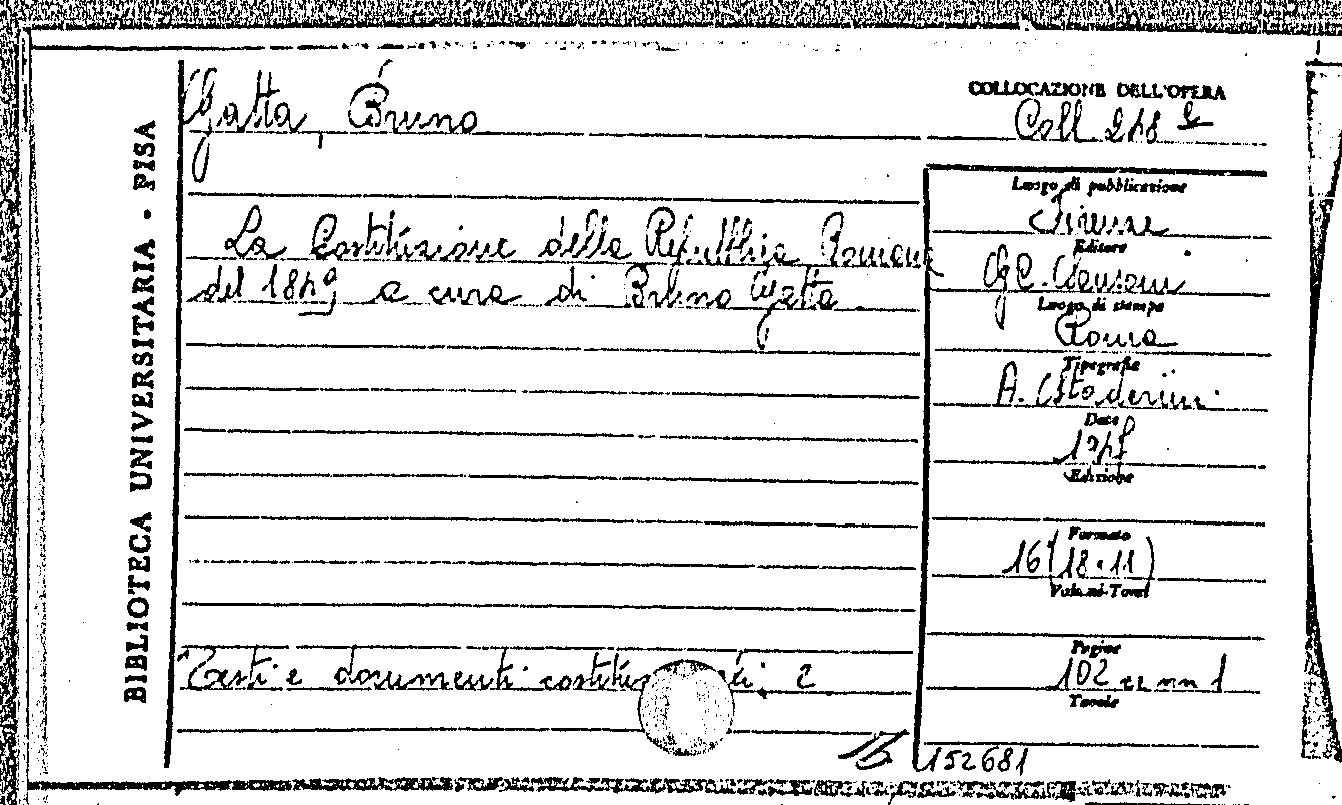 BIBLIOTECA UNIVERSITARIA - PISA
Gatta, Bruno
COLLOCAZIONE DELL'OPERA
Coll 248
La Costituzione della Repubblica Romana
del 1849 a cura di Bruno Gatta
Luogo di pubblicazione
Firenze
Editore
G C. Sansoni
Luogo di stampa
Roma
Tipografia
A. Staderini
Data
Edizione
Formato
16° (18·11)
Volumi-Tomi
Pagine
102 nn 1
Tavole
Testi e documenti 2
152681